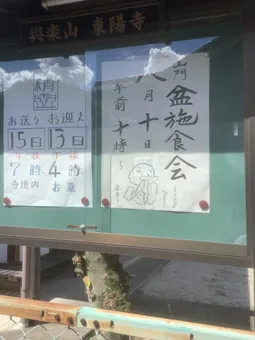 興楽山 東陽寺
山門
盆施食会
八月十日
午前十時〜
精
お迎え
13日
午後
4時
お墓
お送り
15日
午後
7時
寺境内